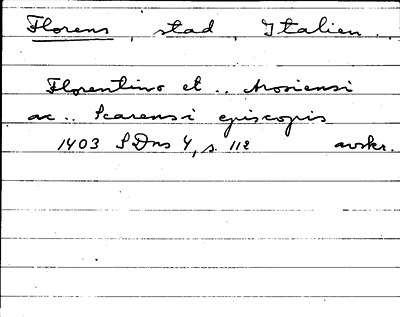 Florens, stad, Italien..
Florentino et .. Arosiensi
ac .. Scarensi episcopis
1403 SDns 4, s. 112 avskr.